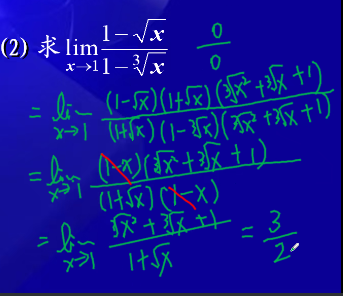 (2) 求 lim x→1 (1-√x)/(1-∛x)  0/0
= lim x→1 (1-√x)(1+√x)(∛x²+∛x+1)/(1+√x)(1-∛x)(∛x²+∛x+1)
= lim x→1 (1-x)(∛x²+∛x+1)/(1+√x)(1-x)
= lim x→1 ∛x²+∛x+1/1+√x = 3/2